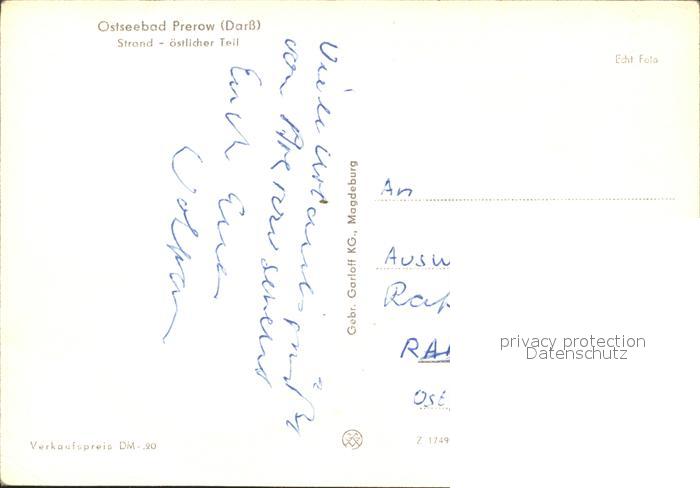 Ostseebad Prerow (Darß)
Strand - östlicher Teil
Echt Foto
Viele Urlaubsgrüße
von
Euch Euer
Gebr. Garloff KG., Magdeburg
An
Ausw
Rap
RA
Ost
privacy protection
Datenschutz
Verkaufspreis DM -,20
Z 1749